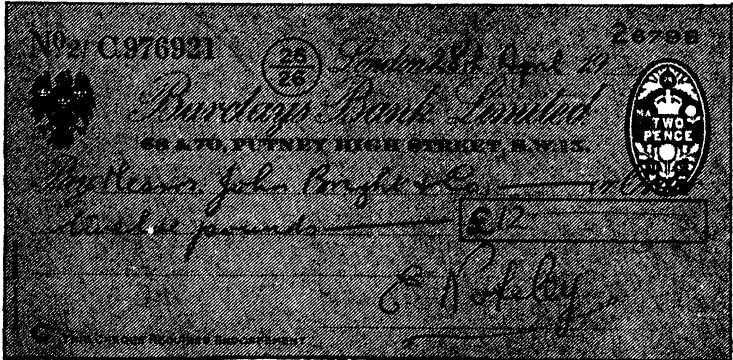 No 2/C.976921 26/26 London April 19 26798
Barclays Bank Limited
68 & 70, PUTNEY HIGH STREET, S.W.15.
TWO PENCE
Pay Messrs. John Bright & Co, or Order
twelve pounds £12
E
THIS CHEQUE REQUIRES ENDORSEMENT